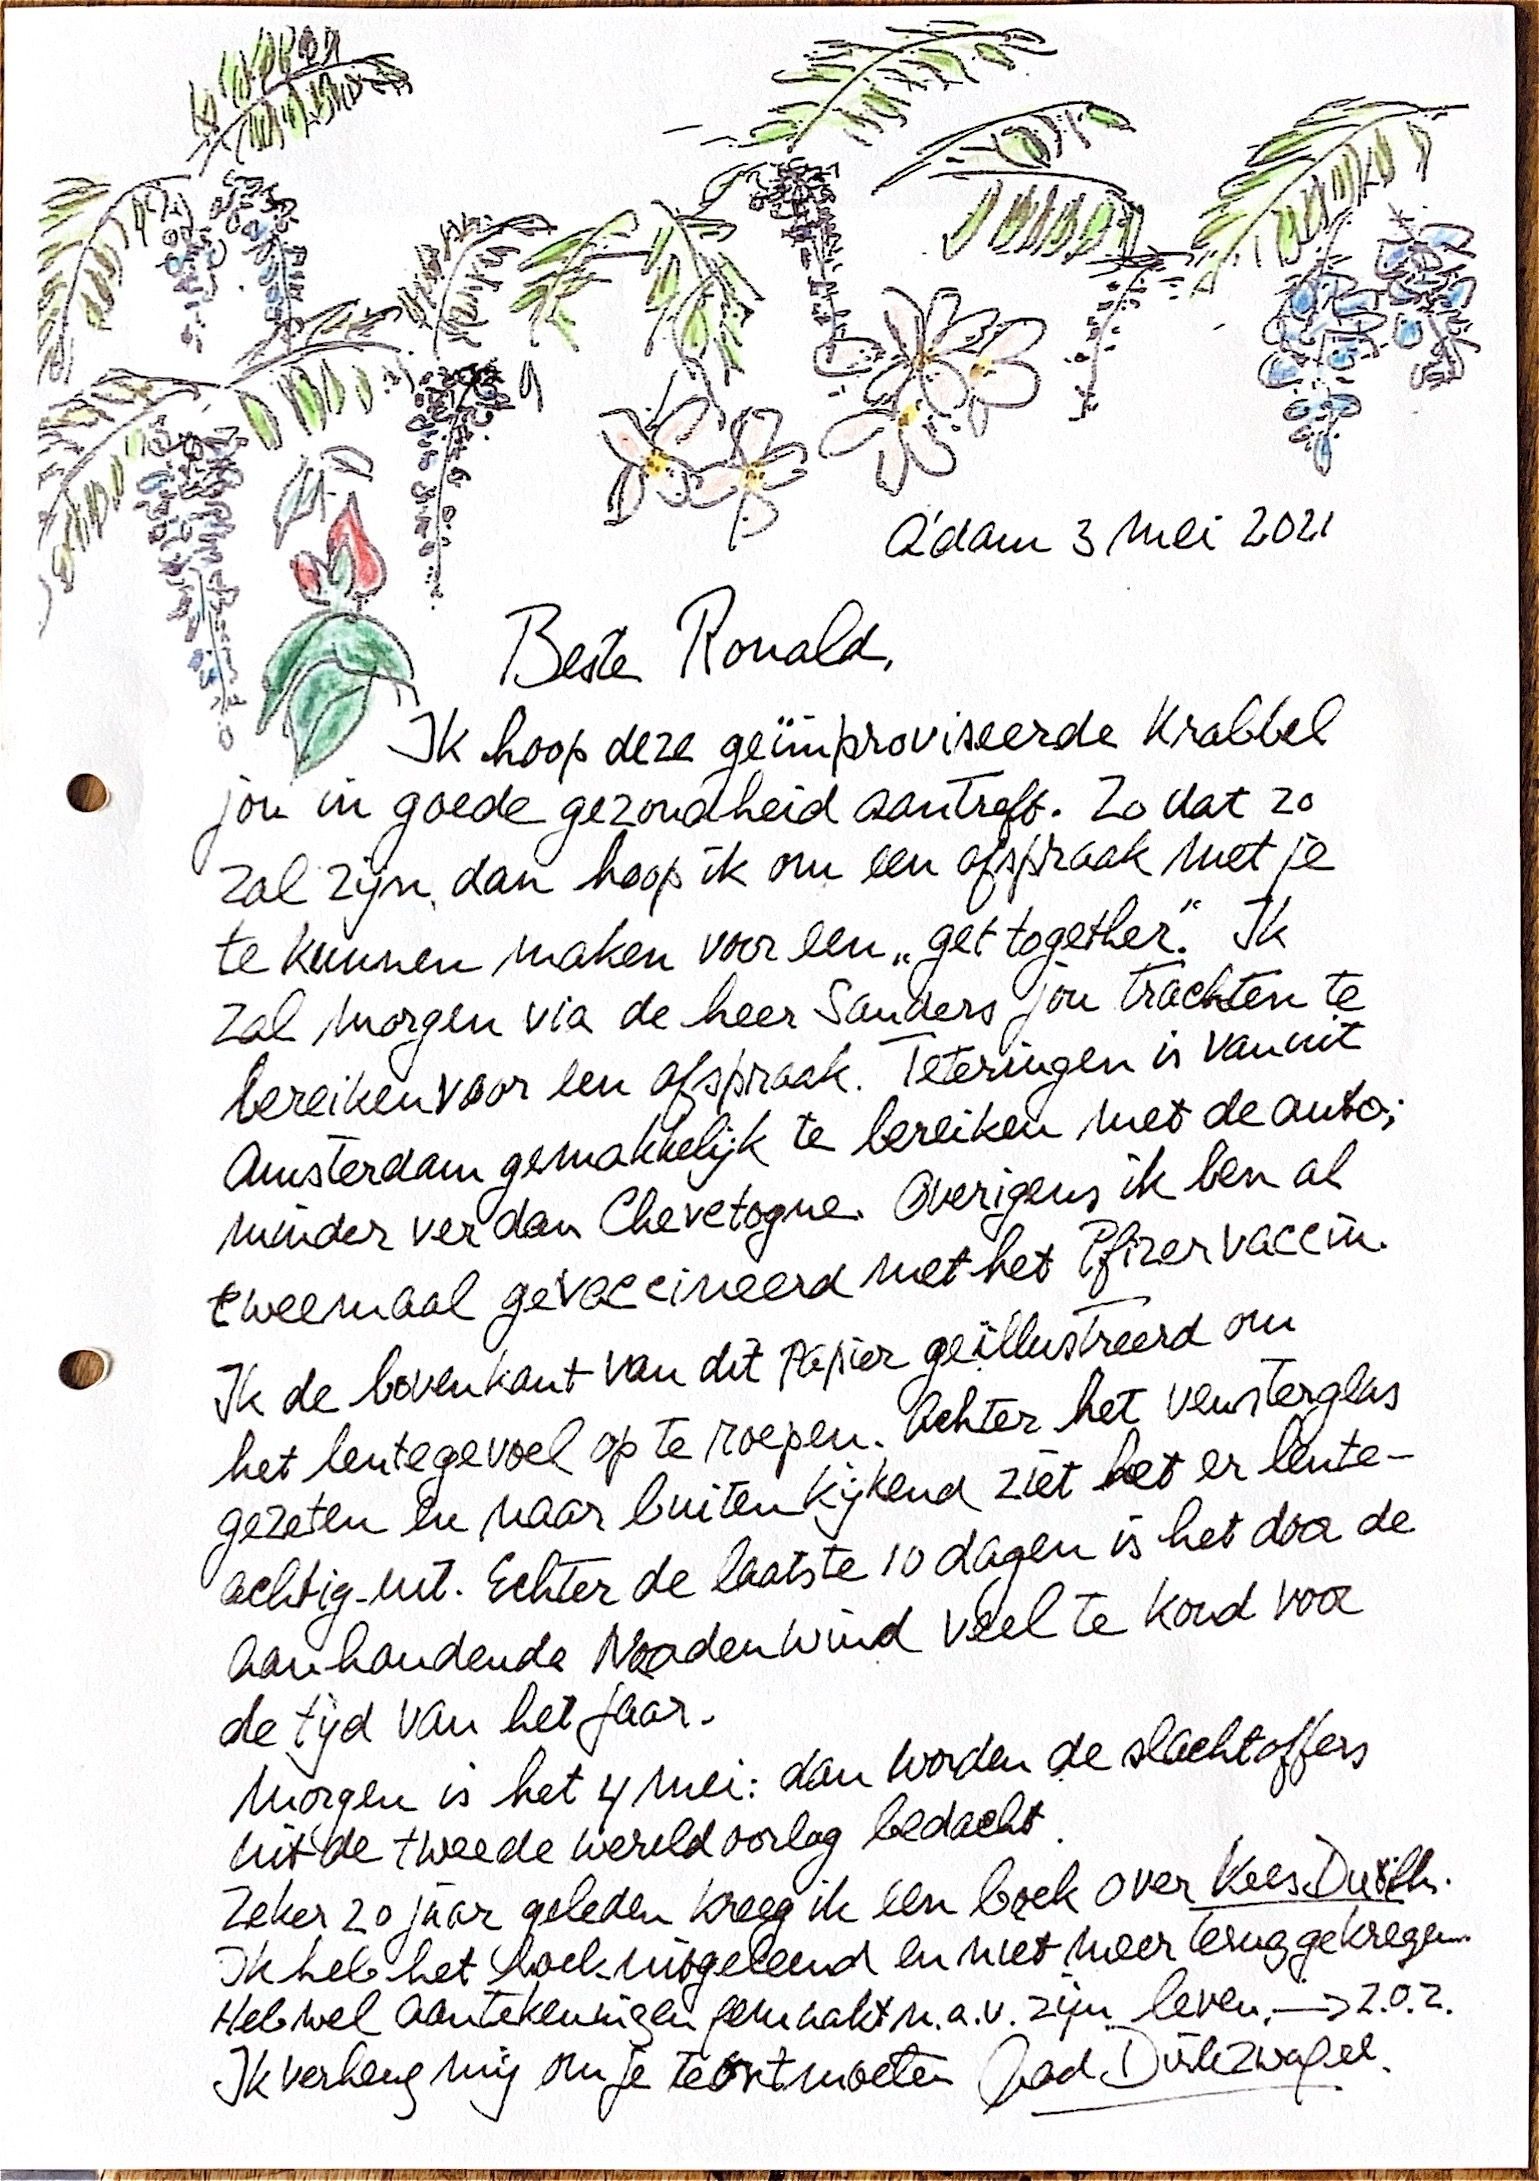 A'dam 3 mei 2021
Beste Ronald,
Ik hoop deze geïmproviseerde krabbel
jou in goede gezondheid aantreft. Zo dat zo
zal zijn, dan hoop ik om een afspraak met je
te kunnen maken voor een „get together”. Ik
zal morgen via de heer Sanders jou trachten te
bereiken voor een afspraak. Teteringen is vanuit
Amsterdam gemakkelijk te bereiken met de auto;
minder ver dan Chevetogne. Overigens ik ben al
tweemaal gevaccineerd met het Pfizervaccin.
Ik de bovenkant van dit papier geïllustreerd om
het lentegevoel op te roepen. Achter het vensterglas
gezeten en naar buiten kijkend ziet het er lente-
achtig uit. Echter de laatste 10 dagen is het door de
aanhoudende Noordenwind veel te koud voor
de tijd van het jaar.
Morgen is het 4 mei: dan worden de slachtoffers
uit de tweede wereldoorlog bedacht.
Zeker 20 jaar geleden kreeg ik een boek over Kees
Ik heb het boek uitgeleend en niet meer teruggekregen.
Heb wel aantekeningen gemaakt n.a.v. zijn leven. → z.o.z.
Ik verheug mij om je te ontmoeten